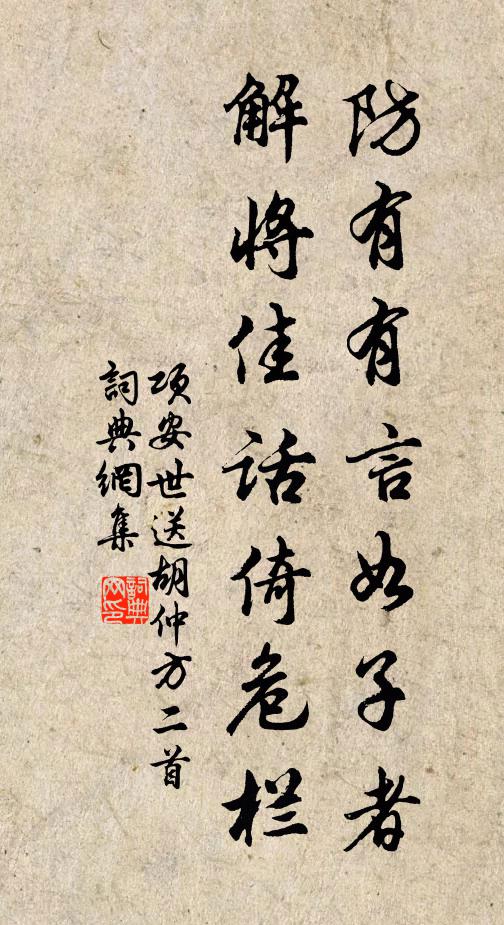 防有有言如子者
解将佳话倚危栏
项安世送胡仲方二首
詞典網集
詞典